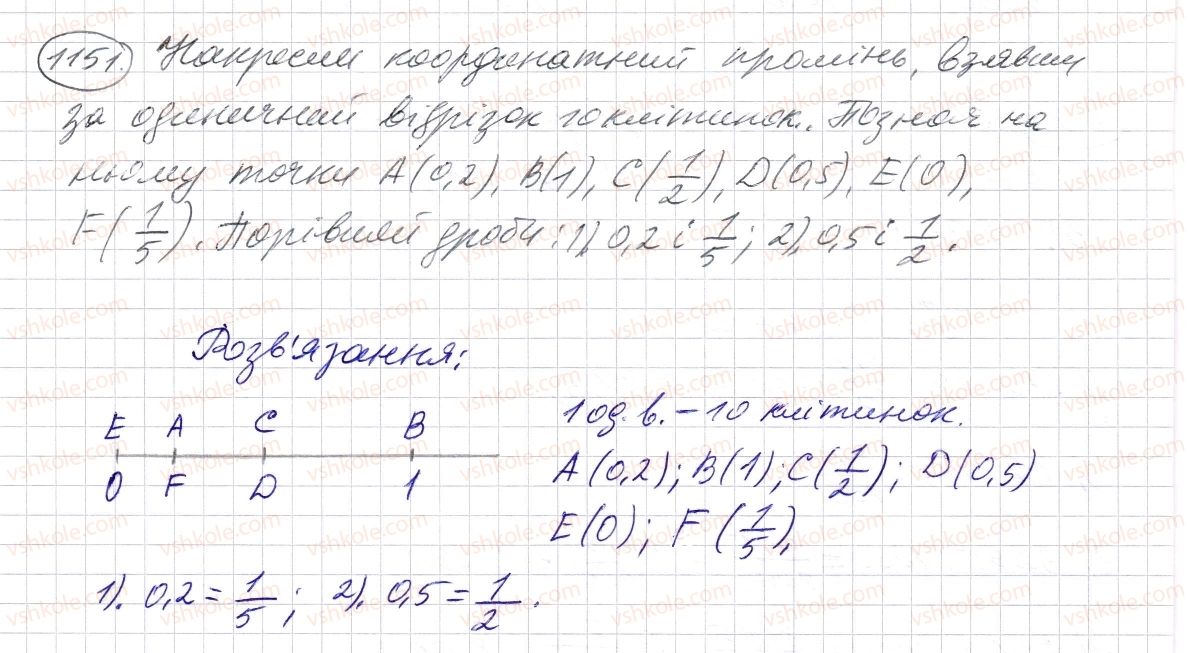 1151. Накресли координатний промінь, взявши
за одиничний відрізок 10 клітинок. Познач на
ньому точки A(0,2), B(1), C(1/2), D(0,5), E(0),
F(1/5). Порівняй дроби: 1). 0,2 і 1/5; 2). 0,5 і 1/2.
Розв'язання:
E A C B
0 F D 1
1 од. в. – 10 клітинок.
A(0,2); B(1); C(1/2); D(0,5)
E(0); F(1/5).
1). 0,2 = 1/5; 2). 0,5 = 1/2.
vshkole.com